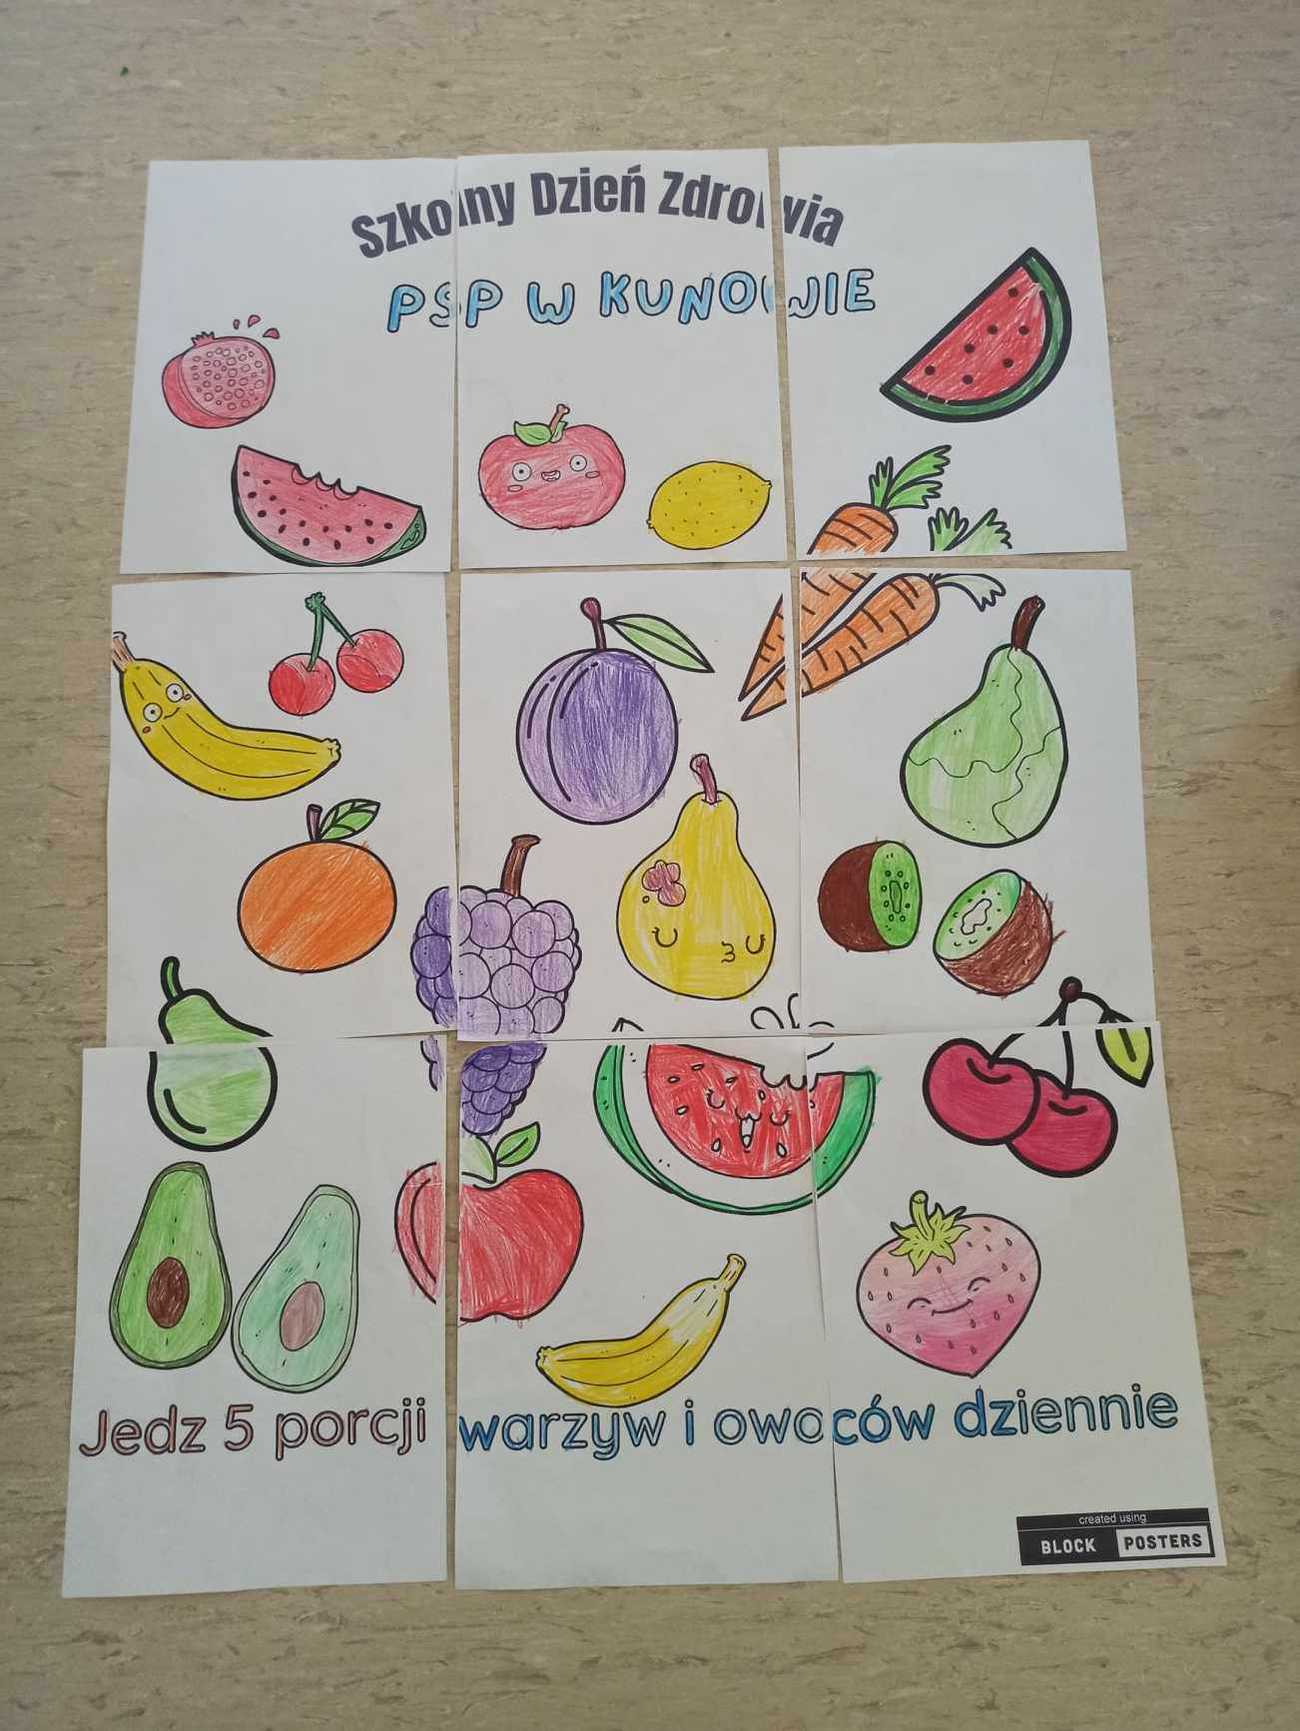 Szkolny Dzień Zdrowia
PSP W KUNOWIE
Jedz 5 porcji warzyw i owoców dziennie
created using
BLOCK POSTERS